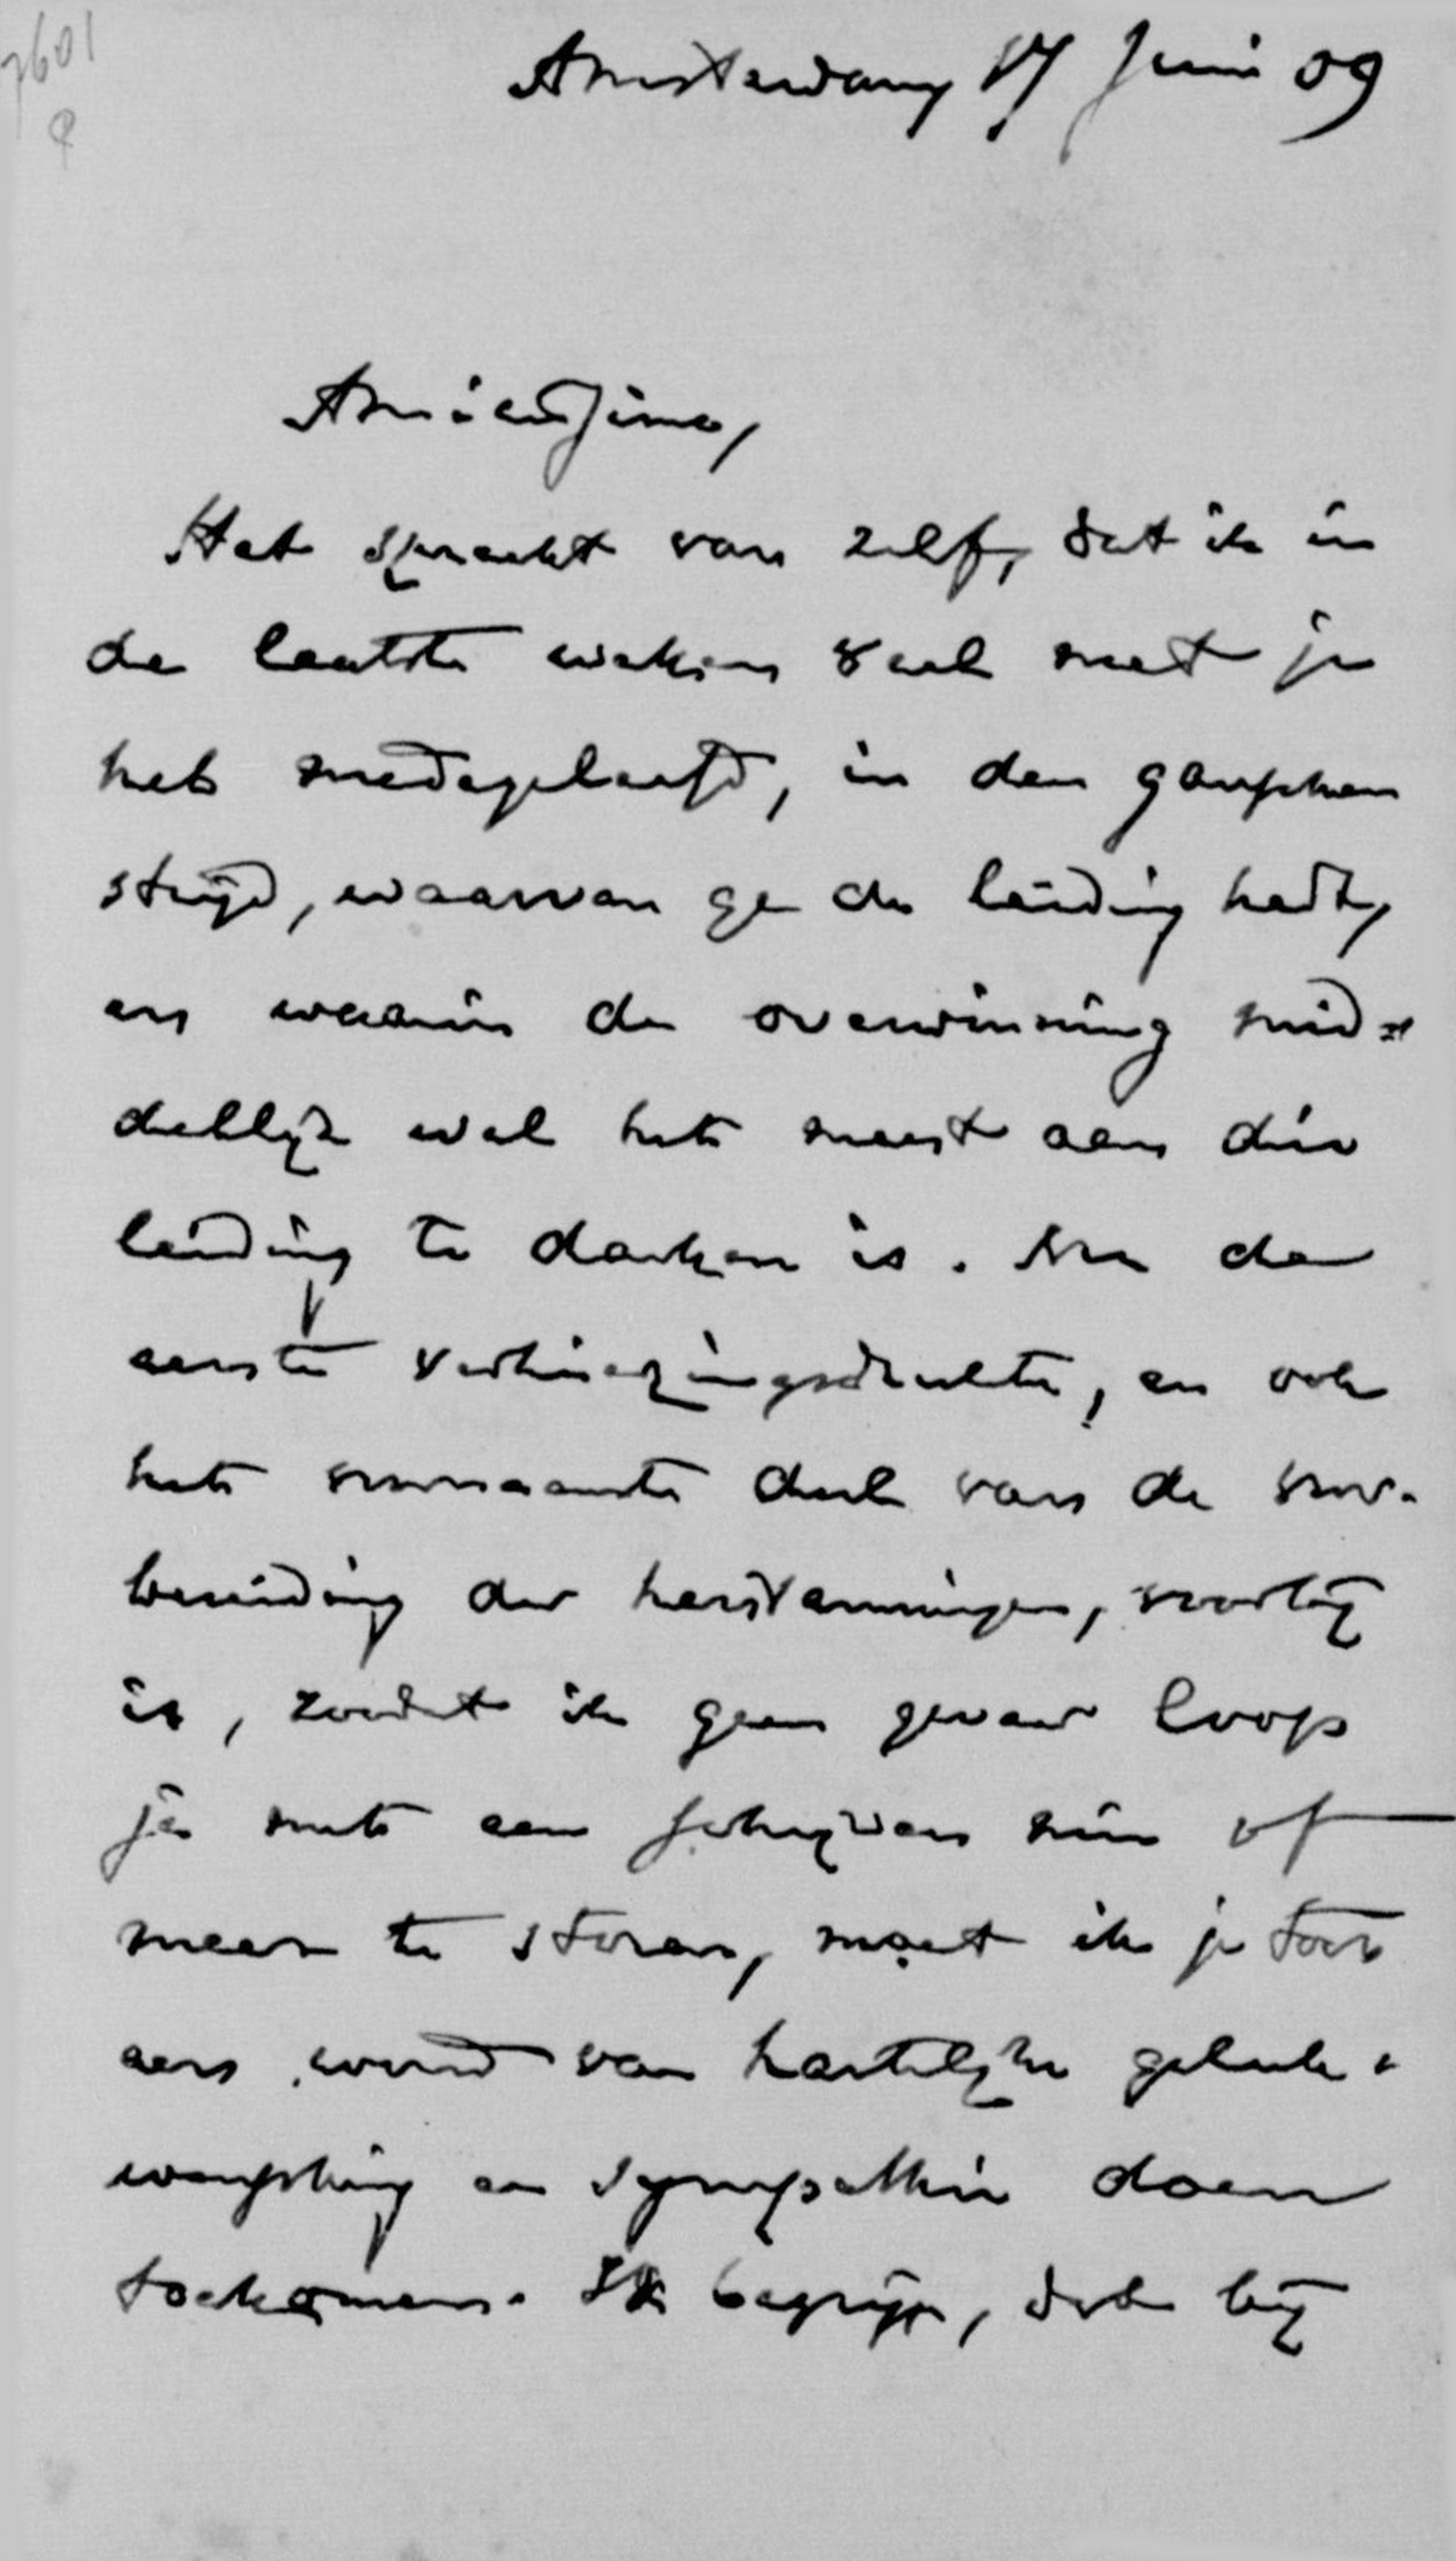 7601
Amsterdam 17 Juni 09
Amicissime,
Het spreekt van zelf, dat ik in
de laatste weken veel met je
heb medegeleefd, in den ganschen
strijd, waarvan ge de leiding hadt,
en waarin de overwinning mid=
dellijk wel het meest aan die
leiding te danken is. Nu de
eerste verkiezingsdrukte, en ook
het voornaamste deel van de voor-
bereiding der herstemmingen, voorbij
is, zoodat ik geen gevaar loop
je met een schrijven min of
meer te storen, moet ik je toch
een woord van hartelijke geluk-
wensching en sympathie doen
toekomen. Ik begrijp, dat bij